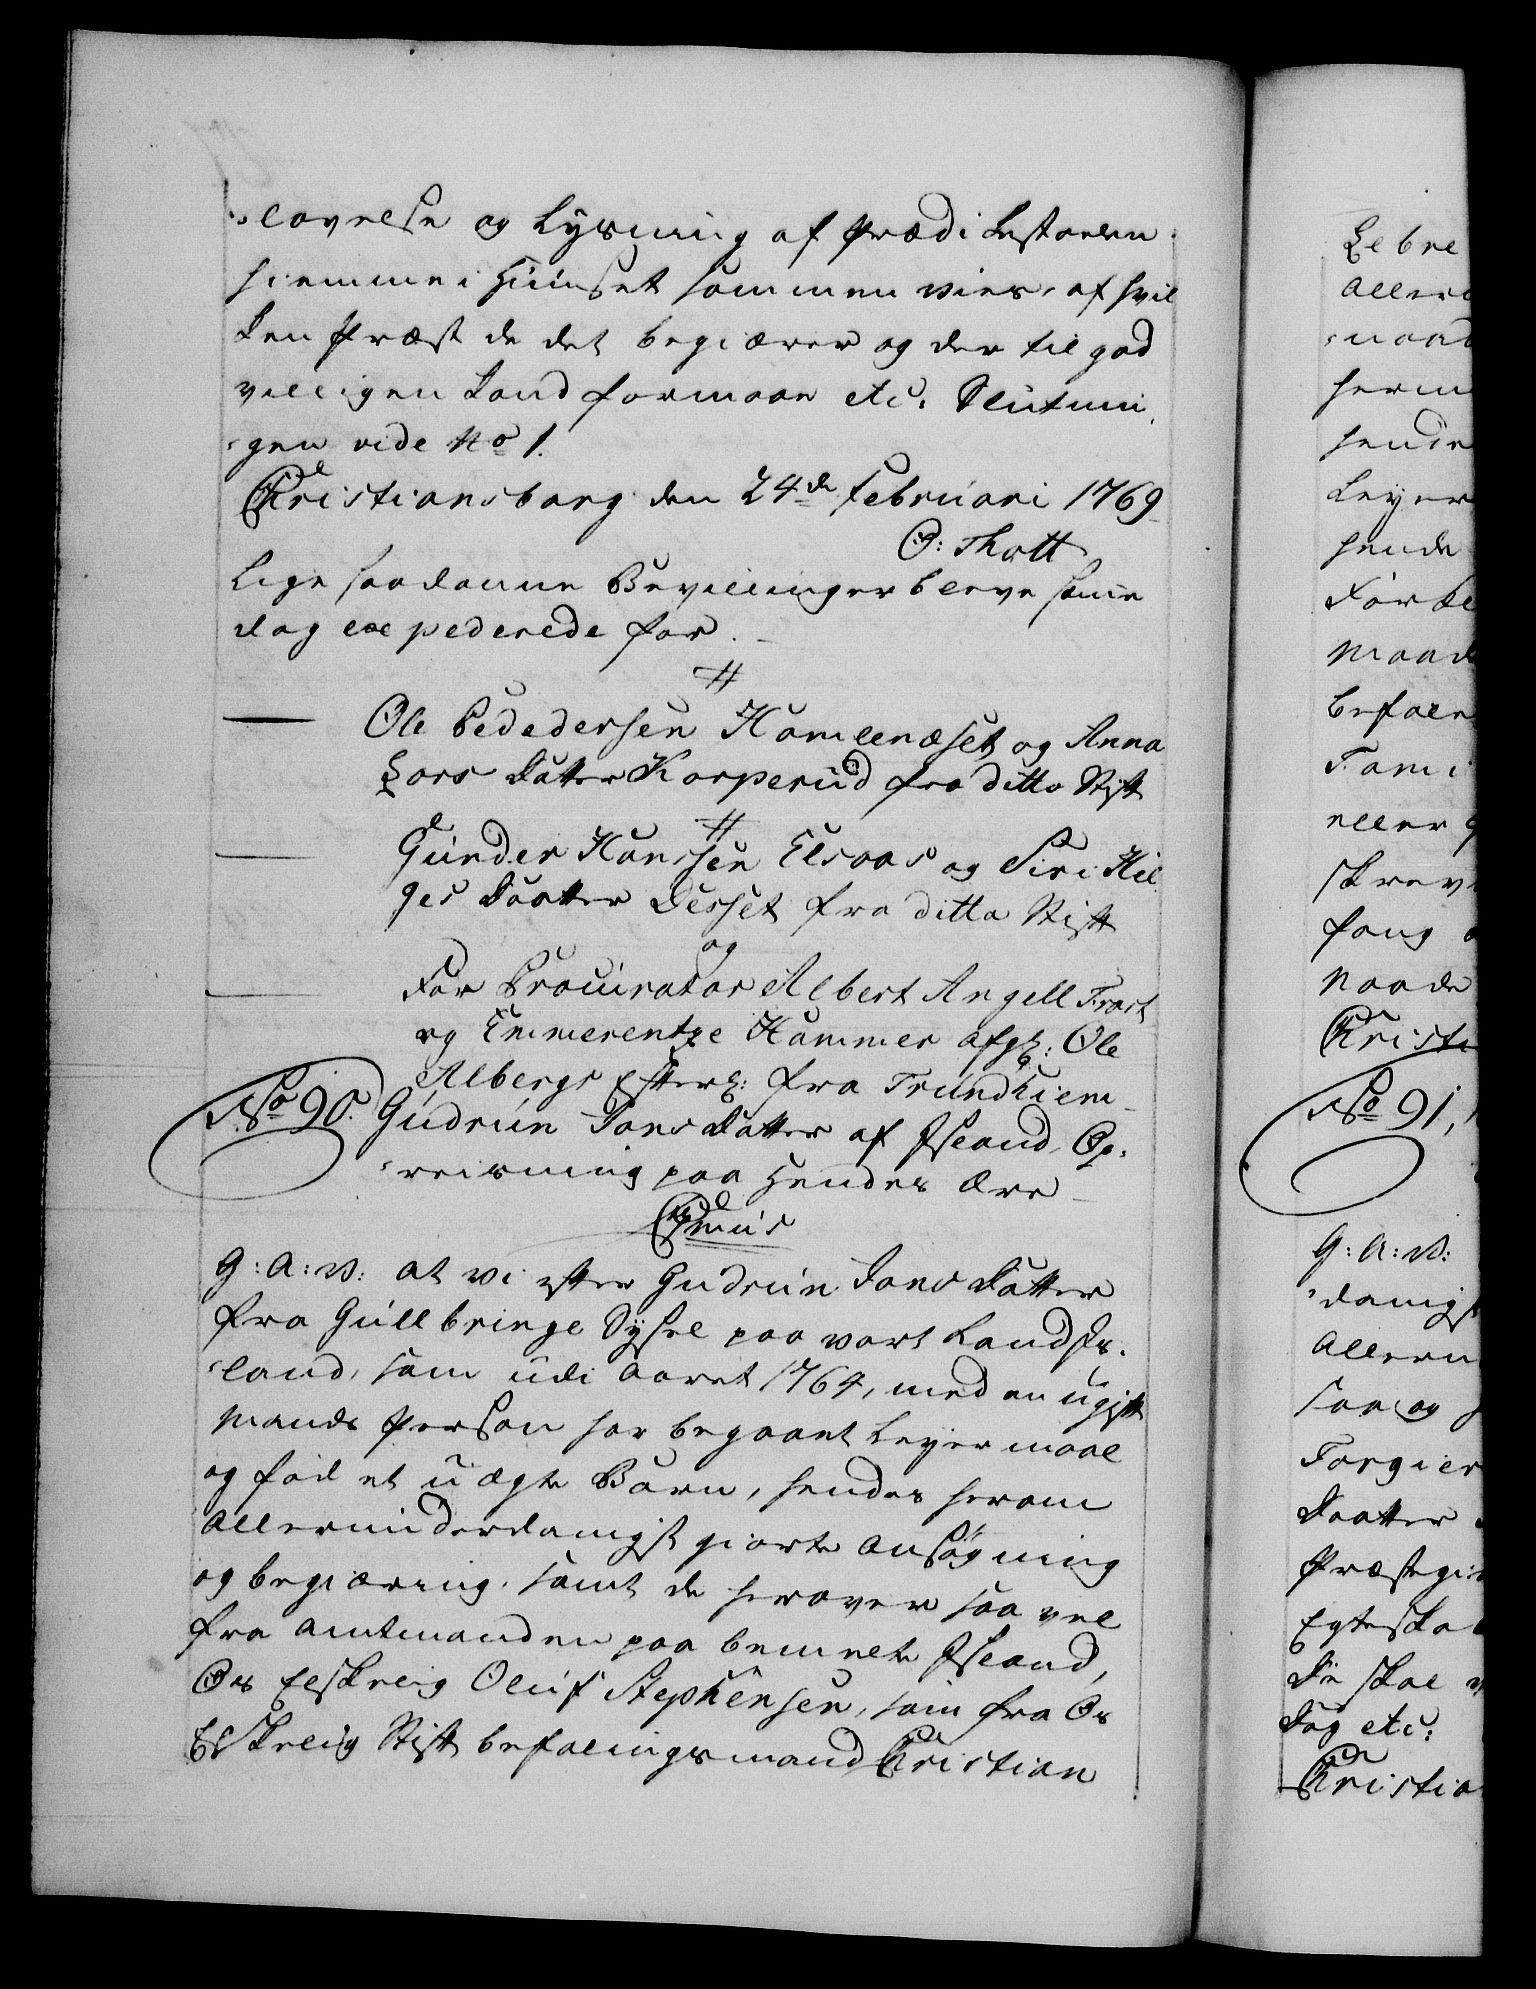 -lovelse og Lysning af Prædikestoelen
hiemme i Huuset sammen vies, af hvil
ken Præst de det begiærer og der til god
villigen kand formaae etc. Slutnin,
-gen vide No 1.
Christiansborg den 24de Februari 1769
O: Thott
Lige saadanne Bevillinger bleve samme
dag expederede for.
#
Ole Pededersen Hamlenæset og Anna
Lars Datter Korperud fra ditto Stift
#
Gunder Hanssen Elsaas og Siri Hel
ges Daatter Desset fra ditto Stift
og
For Procurator Albert Angell Frost
og Emmerentze Hammer afgl: Ole
Albergs Efterl: fra Trundhiem
No 90. Gudrun Jons Datter af Island, Op-
-reisning paa Hendes Ære
Chmus
G: A: V: at vi efter Gudrun Jons Datter
fra Guldbringe Syssel paa vort Land Is-
-land, som udi Aaret 1764, med en ugift
Mands Person har begaaet Leyermaal
og fød et uægte Barn, hendes herom
allerunderdanigst giorte Ansøgning
og begiæring, samt de herover saa vel
fra Amtmanden paa bemelte Island,
Os Elskelig Oluf Stephensen, som fra Os
Elskelig Stiftbefalingsmand Christian
Allern
hende
Leyer
hende
Maad
befale
Fami
eller
skrev
Naade
Christi
No 91,
G: A: V:
-danigst
Allern
saa og
Daatter
Egteskab
De skal
Dog etc:
Christia